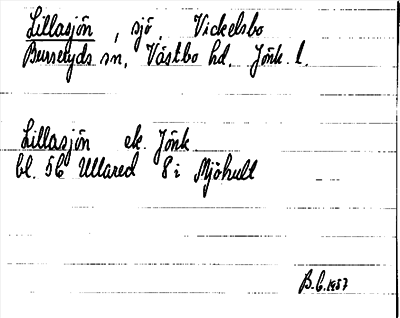 Lillasjön, sjö, Vickelsbo
Burseryds sn, Västbo hd, Jönk. l.
Lillasjön ek. Jönk
bl. 56 Ullared 8 i Mjöhult
B.C. 1957